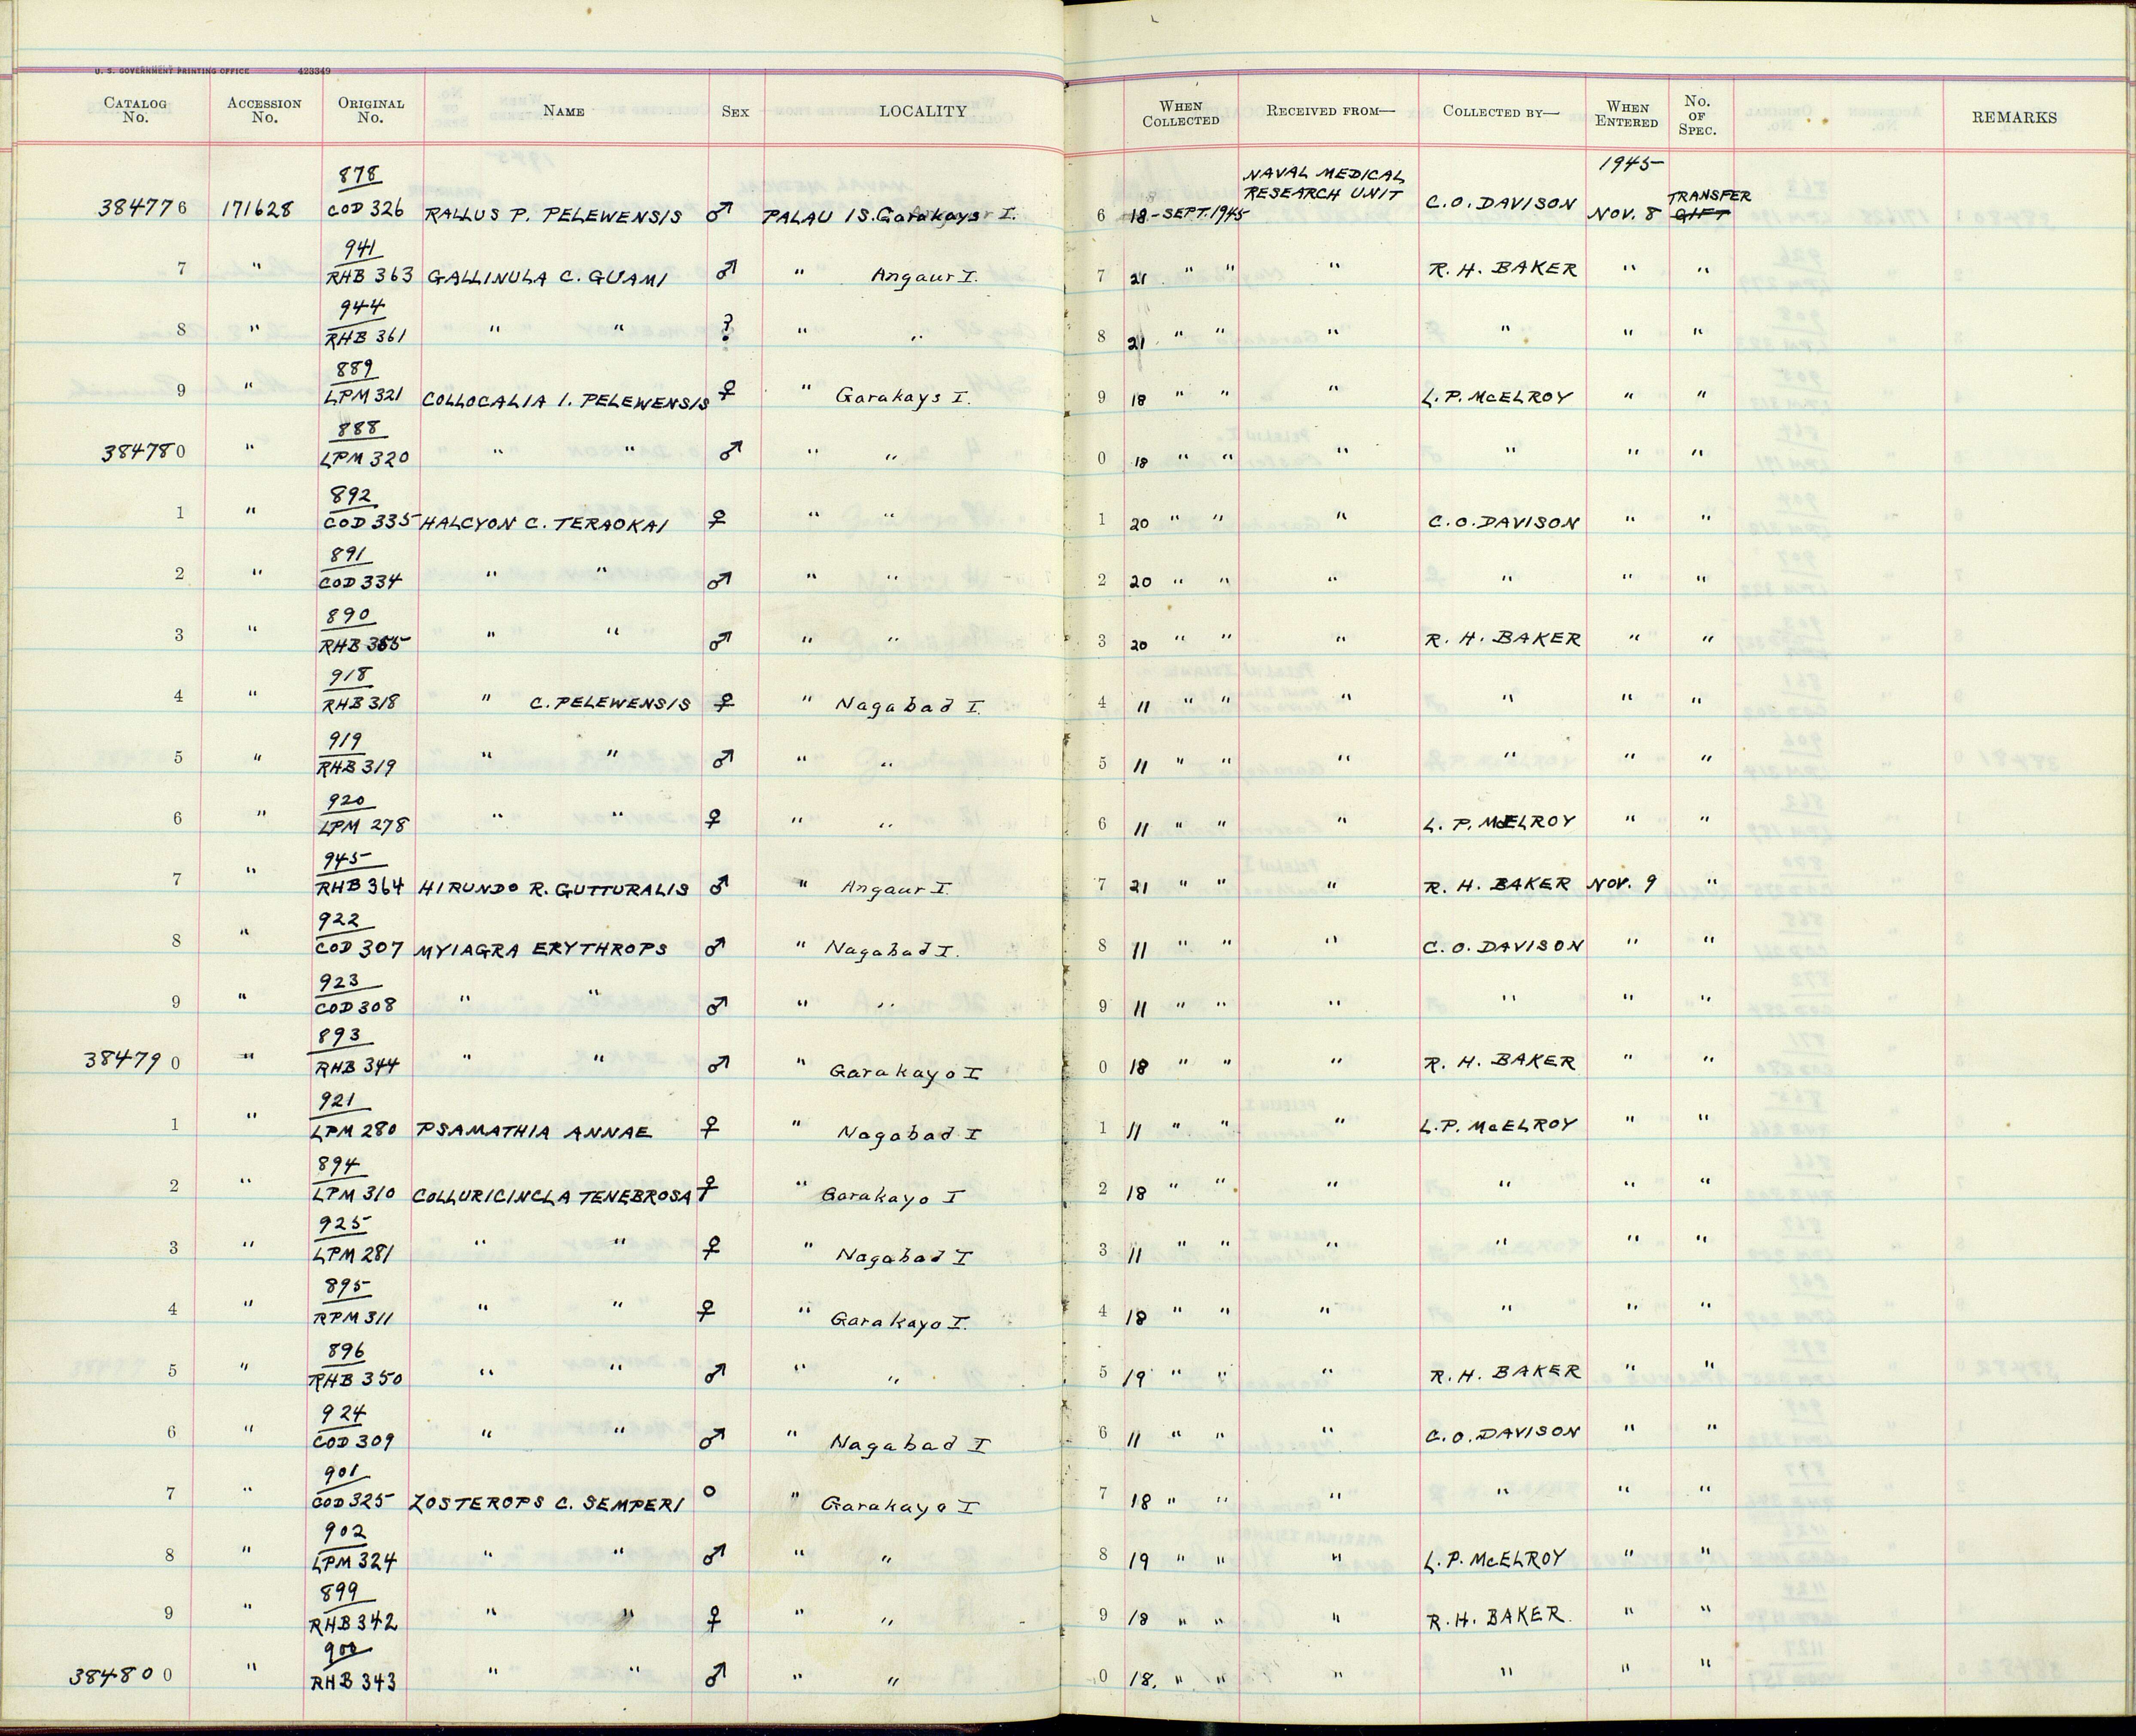 U. S. GOVERNMENT PRINTING OFFICE 423349
CATALOG No. ACCESSION No. ORIGINAL No. NAME SEX LOCALITY WHEN COLLECTED RECEIVED FROM— COLLECTED BY— WHEN ENTERED No. OF SPEC. REMARKS
878 NAVAL MEDICAL 1945
384776 171628 COD 326 RALLUS P. PELEWENSIS ♂ PALAU IS. Garakayo I. 6 18-SEPT. 1945 RESEARCH UNIT C.O. DAVISON NOV. 8 TRANSFER GIFT
941
7 " RHB 363 GALLINULA C. GUAMI ♂ " Angaur I. 7 21 " " " R. H. BAKER " "
944
8 " RHB 361 " " ? " " 8 21 " " " " " "
889
9 " LPM 321 COLLOCALIA I. PELEWENSIS ♀ " Garakays I. 9 18 " " " L. P. McELROY " "
888
384780 " LPM 320 " " ♂ " " 0 18 " " " " " "
892
1 " COD 335 HALCYON C. TERAOKAI ♀ " " 1 20 " " " C.O. DAVISON " "
891
2 " COD 334 " " ♂ " " 2 20 " " " " " "
890
3 " RHB 355 " " ♂ " " 3 20 " " " R. H. BAKER " "
918
4 " RHB 318 " C. PELEWENSIS ♀ " Nagabad I. 4 11 " " " " " "
919
5 " RHB 319 " " ♂ " " 5 11 " " " " " "
920
6 " LPM 278 " " ♀ " " 6 11 " " " L. P. McELROY " "
945
7 " RHB 364 HIRUNDO R. GUTTURALIS ♂ " Angaur I. 7 21 " " " R. H. BAKER NOV. 9 "
922
8 " COD 307 MYIAGRA ERYTHROPS ♂ " Nagabad I. 8 11 " " " C. O. DAVISON " "
923
9 " COD 308 " " ♂ " " 9 11 " " " " " "
893
384790 " RHB 344 " " ♂ " Garakayo I 0 18 " " " R. H. BAKER " "
921
1 " LPM 280 PSAMATHIA ANNAE ♀ " Nagabad I 1 11 " " " L.P. McELROY " "
894
2 " LPM 310 COLLURICINCLA TENEBROSA ♀ " Garakayo I 2 18 " " " " " "
925
3 " LPM 281 " " ♀ " Nagabad I 3 11 " " " " " "
895
4 " RPM 311 " " ♀ " Garakayo I. 4 18 " " " " " "
896
5 " RHB 350 " " ♂ " " 5 19 " " " R. H. BAKER " "
924
6 " COD 309 " " ♂ " Nagabad I 6 11 " " " C. O. DAVISON " "
901
7 " COD 325 ZOSTEROPS C. SEMPERI O " Garakayo I 7 18 " " " " " "
902
8 " LPM 324 " " ♂ " " 8 19 " " " L. P. McELROY " "
899
9 " RHB 342 " " ♀ " " 9 18 " " " R. H. BAKER. " "
900
384800 " RHB 343 " " ♂ " " 0 18. " " " " " "